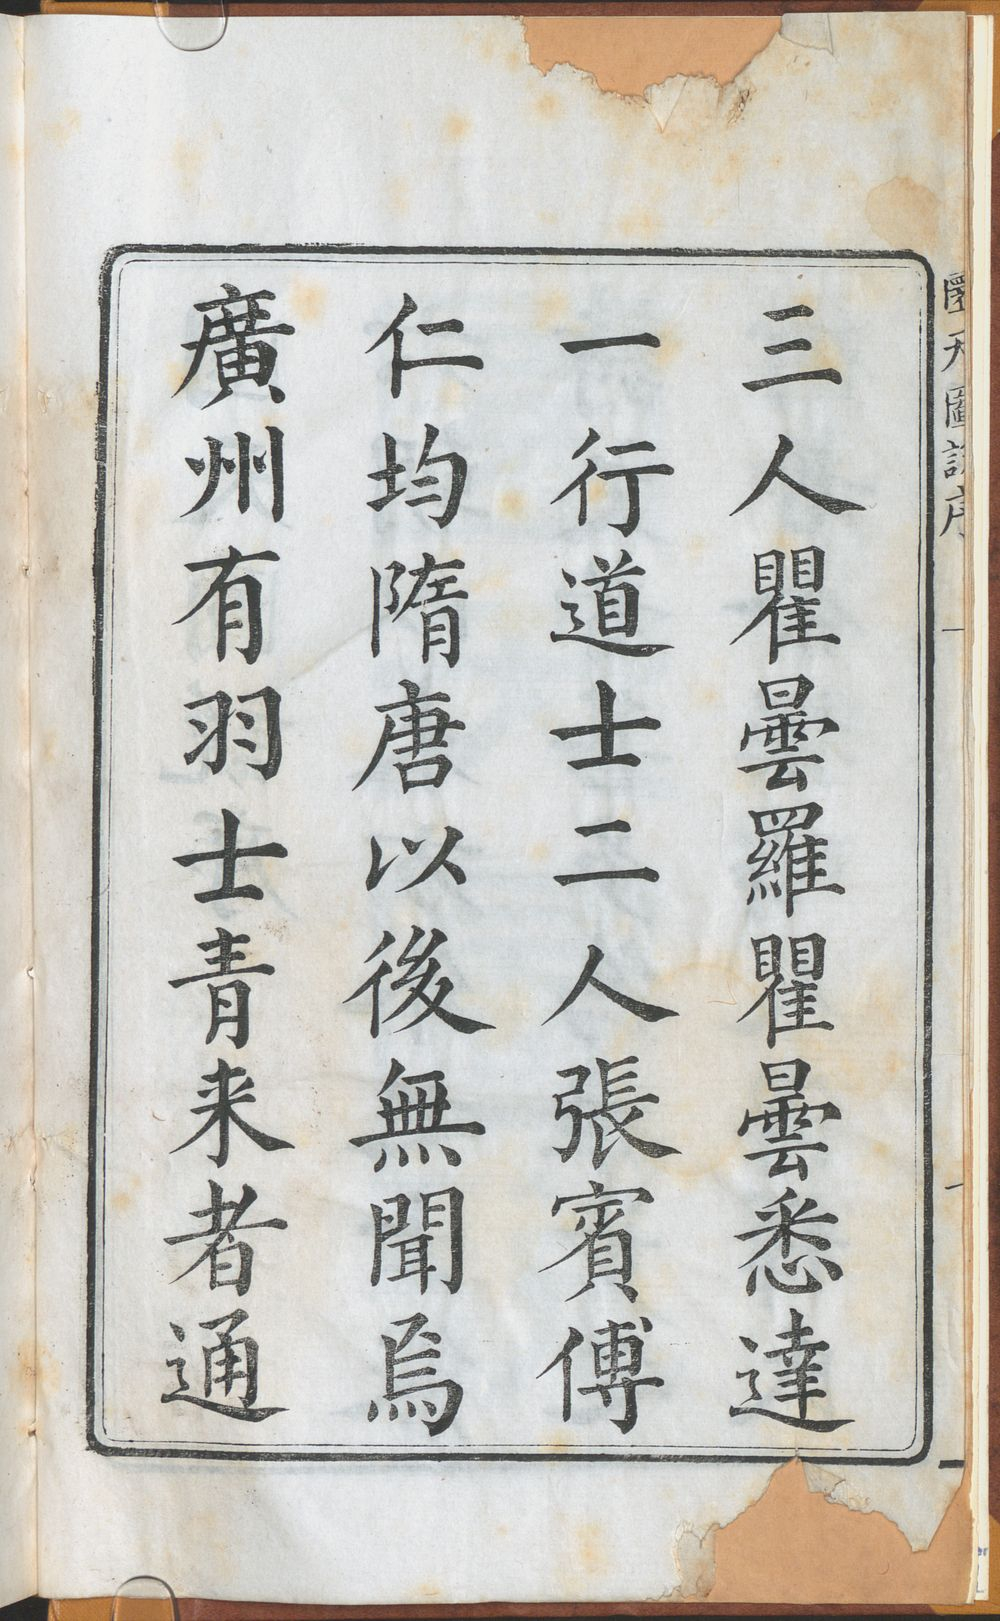 三人瞿曇羅瞿曇悉達
一行道士二人張賓傅
仁均隋唐以後無聞焉
廣州有羽士青来者通
圜天圖說序
一